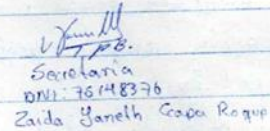 P.B.
Secretaria
DNI: 76148376
Zaida Yaneth Ccapa Roque